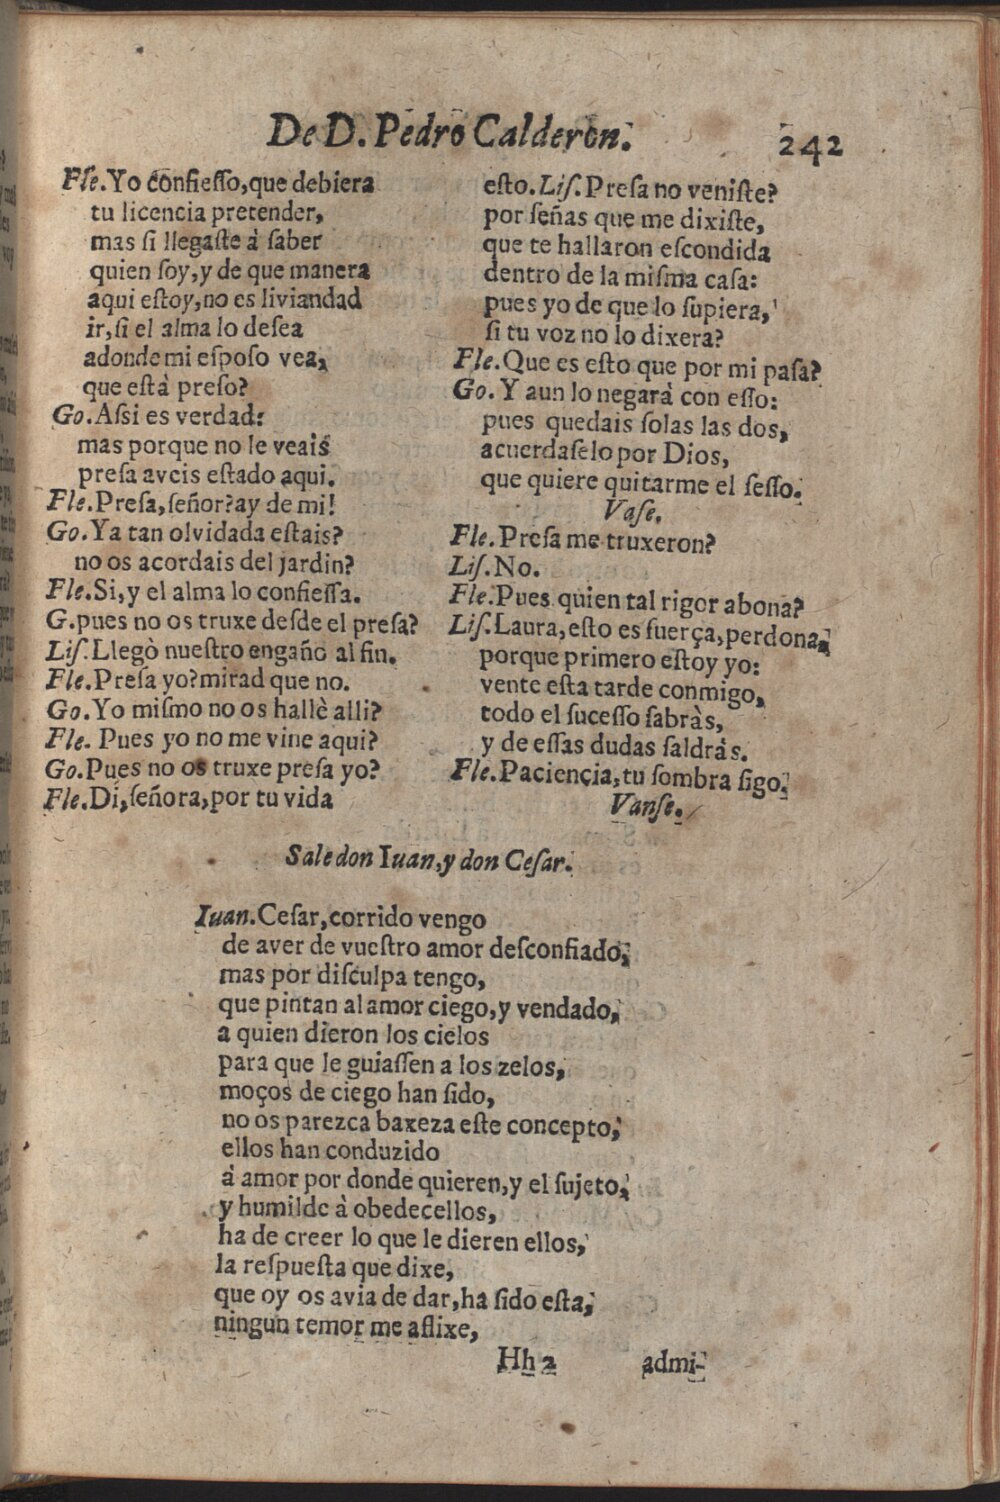 De D. Pedro Calderon. 242
Fle. Yo confiesso, que debiera
tu licencia pretender,
mas si llegaste à saber
quien soy, y de que manera
aqui estoy, no es liviandad
ir, si el alma lo desea
adonde mi esposo vea,
que està preso?
Go. Assi es verdad:
mas porque no le veais
presa aveis estado aqui.
Fle. Presa, señor? ay de mi!
Go. Ya tan olvidada estais?
no os acordais del jardin?
Fle. Si, y el alma lo confiessa.
G. pues no os truxe desde el presa?
Lis. Llegò nuestro engaño al fin.
Fle. Presa yo? mirad que no.
Go. Yo mismo no os hallè alli?
Fle. Pues yo no me vine aqui?
Go. Pues no os truxe presa yo?
Fle. Di, señora, por tu vida
esto. Lis. Presa no veniste?
por señas que me dixiste,
que te hallaron escondida
dentro de la misma casa:
pues yo de que lo supiera,
si tu voz no lo dixera?
Fle. Que es esto que por mi pasa?
Go. Y aun lo negarà con esso:
pues quedais solas las dos,
acuerdaselo por Dios,
que quiere quitarme el sesso.
Vase.
Fle. Presa me truxeron?
Lis. No.
Fle. Pues quien tal rigor abona?
Lis. Laura, esto es fuerça, perdona,
porque primero estoy yo:
vente esta tarde conmigo,
todo el sucesso sabràs,
y de essas dudas saldràs.
Fle. Paciencia, tu sombra sigo.
Vanse.
Sale don Iuan, y don Cesar.
Iuan. Cesar, corrido vengo
de aver de vuestro amor desconfiado,
mas por disculpa tengo,
que pintan al amor ciego, y vendado,
a quien dieron los cielos
para que le guiassen a los zelos,
moços de ciego han sido,
no os parezca baxeza este concepto,
ellos han conduzido
à amor por donde quieren, y el sujeto,
y humilde à obedecellos,
ha de creer lo que le dieren ellos,
la respuesta que dixe,
que oy os avia de dar, ha sido esta,
ningun temor me aflixe,
Hh 2 admi-